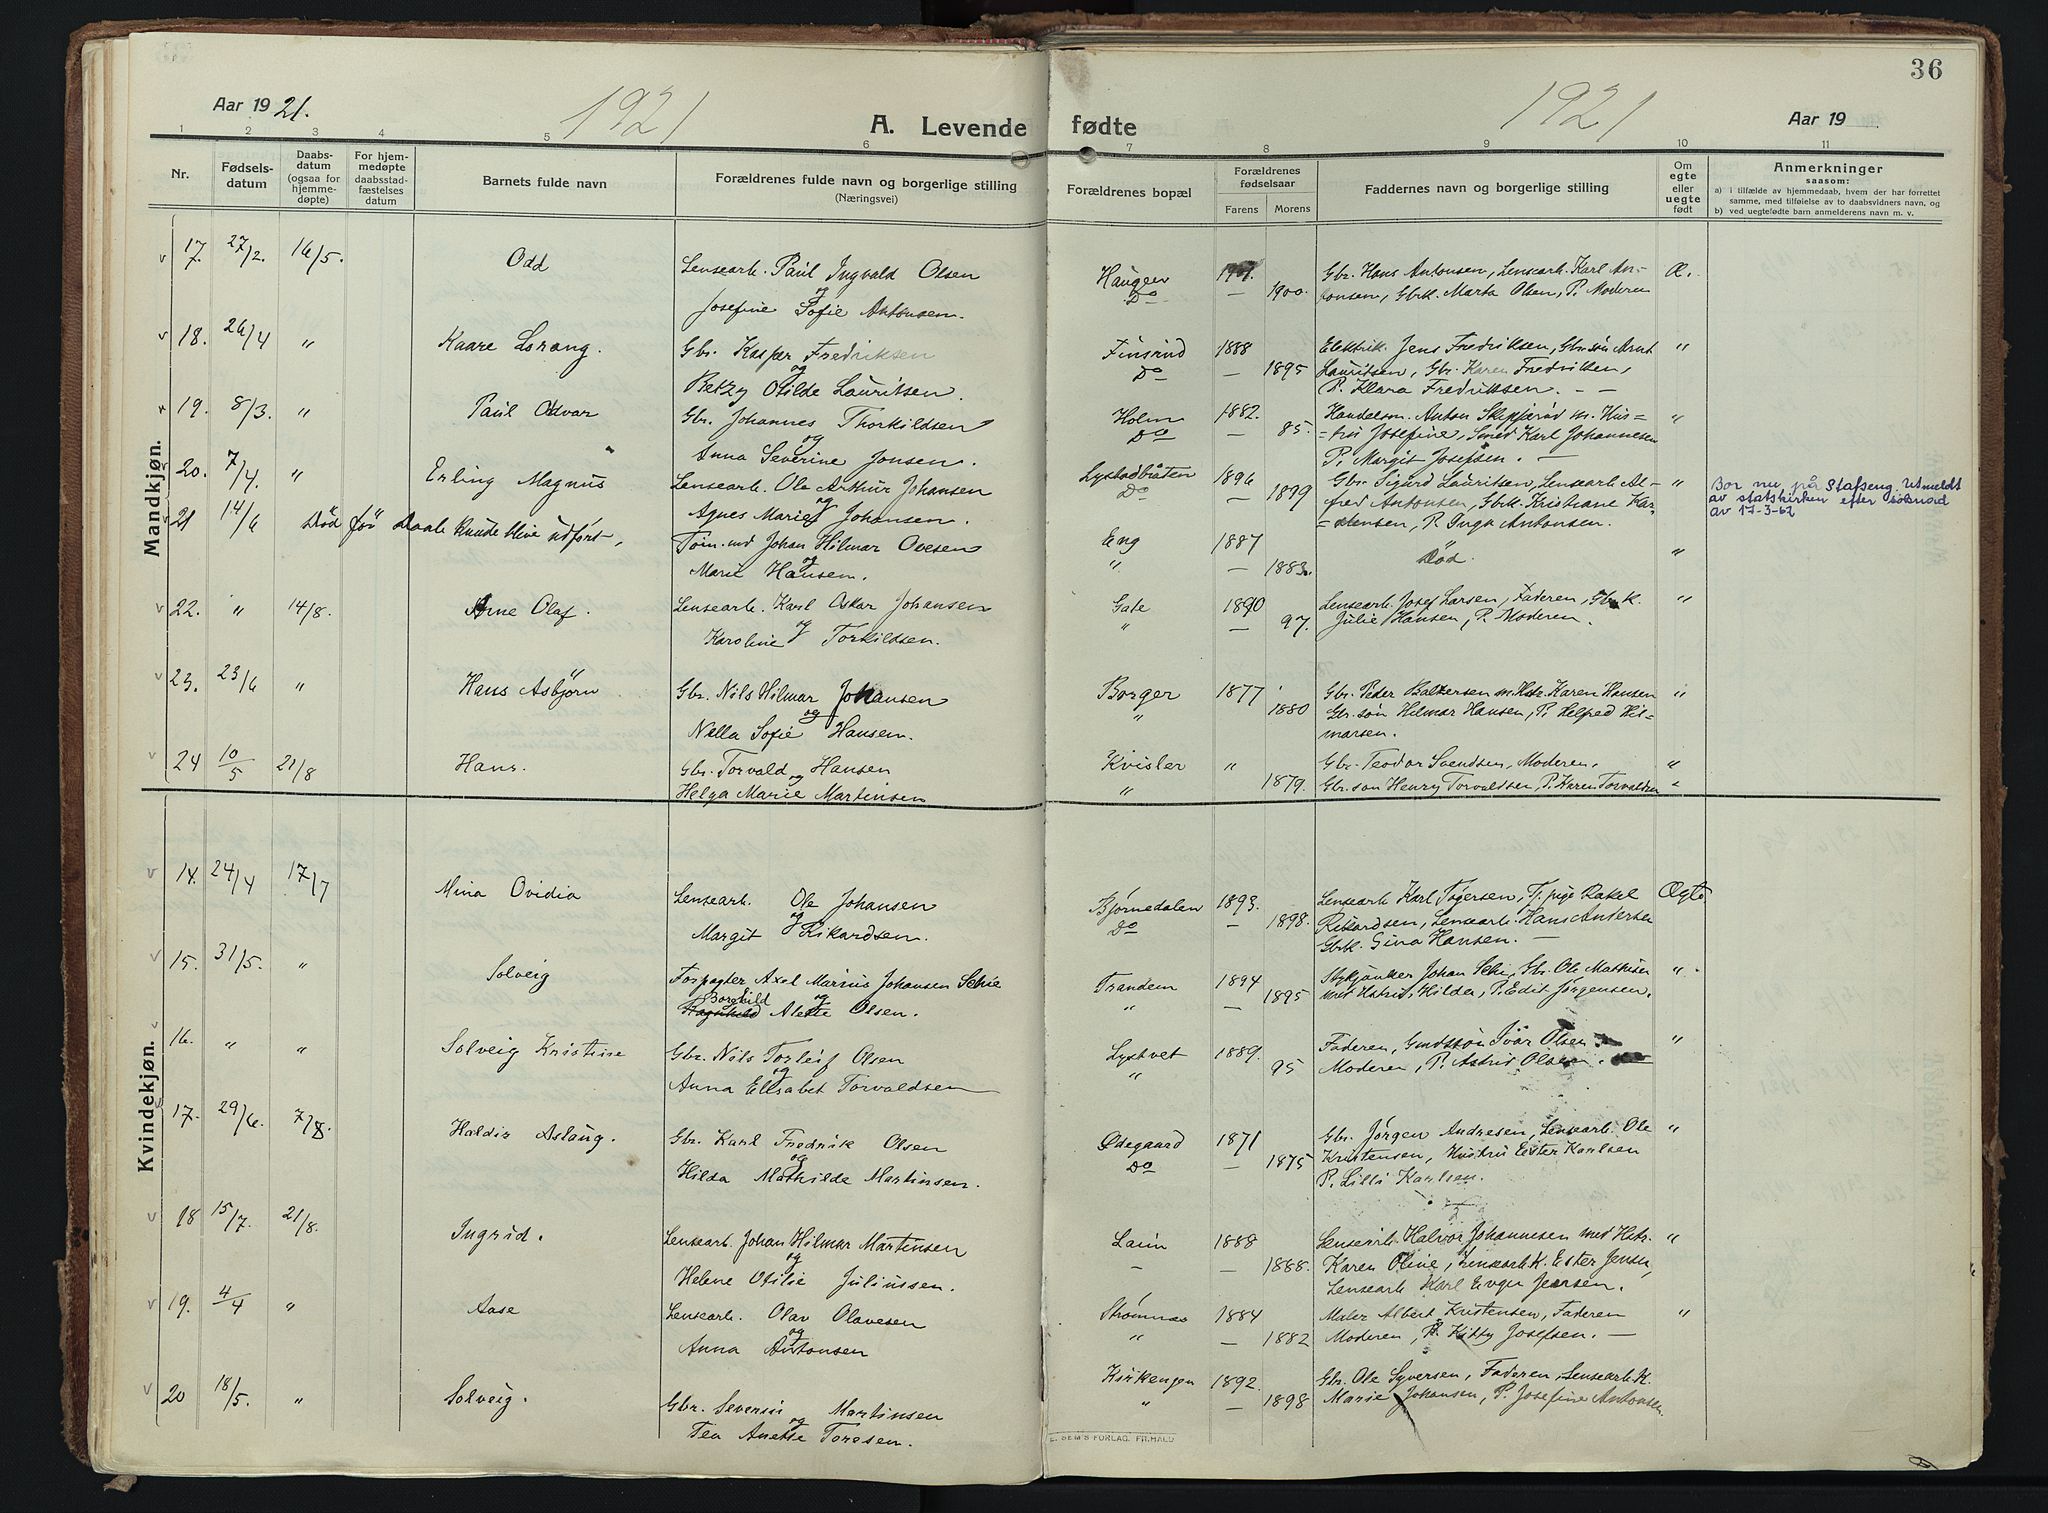 36
Aar 1921.
1921
A. Levende fødte
1921
Aar 19
1 2 3 4 5 6 7 8 9 10 11
Nr.
Fødsels-
datum
Daabs-
datum
(ogsaa for
hjemme-
døpte)
For hjem-
medøpte
daabsstad-
fæstelses
datum
Barnets fulde navn
Forældrenes fulde navn og borgerlige stilling
(Næringsvei)
Forældrenes bopæl
Forældrenes
fødselsaar
Farens Morens
Faddernes navn og borgerlige stilling
Om
egte
eller
uegte
født
Anmerkninger
saasom:
a) i tilfælde av hjemmedaab, hvem der har forrettet
samme, med tilføielse av to daabsvidners navn, og
b) ved uegtefødte barn anmelderens navn m. v.
Mandkjøn.
17. 27/2. 16/5. Odd Lensearb. Paul Ingvald Olsen Haugen 1901. Gbr. Hans Antonsen, Lensearb. Karl An- Æ.
og
Josefine Sofie Antonsen. Do — 1900. tonsen, Gbrk. Marta Olsen, P. Moderen
18. 26/4 " Kaare Lorang. Gbr. Kasper Fredriksen Finsrud 1888 Elektrik. Jens Fredriksen, Gbr.søn Arnt "
og
Betzy Otilde Lauritsen. Do — 1895 Lauritsen, Gbr. Karen Fredriksen,
P. Klara Fredriksen. — —
19. 8/3. " Paul Odvar Gbr. Johannes Thorkildsen Holm 1882. Handelsm. Anton Skipperød m. Hus= "
og
Anna Severine Jonsen. Do — 85. =tru Josefine, Smed Karl Johannesen
P. Margit Josefsen. —
20. 7/4. " Erling Magnus Lensearb. Ole Arthur Johansen Lystadbråten 1896 Gbr. Sigurd Lauritsen, Lensearb. Al- "
og
Agnes Marie Johansen. Do — 1899 fred Antonsen, Gbrk. Kristiane Kar-
=stensen, P. Inga Antonsen.
Bor nu på Stafseng. Utmeldt
av statskirken efter søknad
av 17-3-62
21 14/6 Død før Daab kunde blive udført, Tøm.md Johan Hilmar Ovesen Eng 1887 Død. "
og
Marie Hansen. " — 1883.
22. " 14/8. Arne Olaf. Lensearb. Karl Oskar Johansen Gate 1890 Lensearb. Josef Larsen, Faderen, Gbrk. "
og
Karoline Torkildsen. " — 97. Julie Hansen, P. Moderen.
23. 23/6 " Hans Asbjørn Gbr. Nils Hilmar Johansen Borger 1877 Gbr. Peder Baltzersen m. Hstr. Karen Hansen "
og
Nella Sofie Hansen. " 1880 Gbr.søn Hilmar Hansen, P. Helfred Hil-
marsen.
24 10/5 21/8 Hans. Gbr. Torvald Hansen Kvisler " Gbr. Teodor Svendsen, Moderen, "
og
Helga Marie Martinsen " 1879. Gbr.søn Henry Torvaldsen, P. Karen Torvaldsen "
Kvindekjøn.
14. 24/4 17/7 Mina Ovidia Lensearb. Ole Johansen Bjørnedalen 1893. Lensearb. Karl Tøgersen, Tj.pige Rakel Ægte.
og
Margit Rikardsen. Do — 1898. Rikardsen, Lensearb. Hans Andersen
Gbrk. Gina Hansen. —
15. 31/5. " Solveig Forpagter Axel Marius Johansen Schie Trandem 1894 Johan Schi, Gbr. Ole Mathisen "
Borghild og
Ragnhild Alette Olsen. " 1895 med Hstr. Hilda, P. Edit Jørgensen.
16. " " Solveig Kristine Gbr. Nils Torleif Olsen Lystvet 1889. Faderen, Ivar Olsen "
og
Anna Elisabet Torvaldsen " 95 Moderen, P. Astrid Olsen.
17. 29/6. 7/8. Haldis Aslaug. Gbr. Karl Fredrik Olsen Ødegaard 1871 Gbr. Jørgen Andresen, Lensearb. Ole "
og
Hilda Mathilde Martinsen. Do — 1875 Kristensen, Hustru Ester Karlsen
P. Lilli Karlsen.
18 15/7. 21/8. Ingrid. Lensearb. Johan Hilmar Martinsen Laun 1888 Lensearb. Halvor Johannesen med Hstr. "
og
Helene Otilie Juliussen. — 1888. Karen Oline, Lensearb.k. Ester Jensen,
Lensearb. Karl Jensen.
19. 4/4 " Aase Lensearb. Olav Olavesen Strømnes 1884 Maler Albert Kristensen, Faderen "
og
Anna Antonsen " — 1882 Moderen, P. Kitty Josefsen. —
20 18/5. " Solveig. Gbr. Severin Martinsen Kirkengen 1892. Gbr. Ole Syversen, Faderen, Lensearb.k.
og
Tea Anette Toresen. " — 1898 Marie Johansen, P. Josefine Antonsen.
E. SEM'S FORLAG. FR.HALD